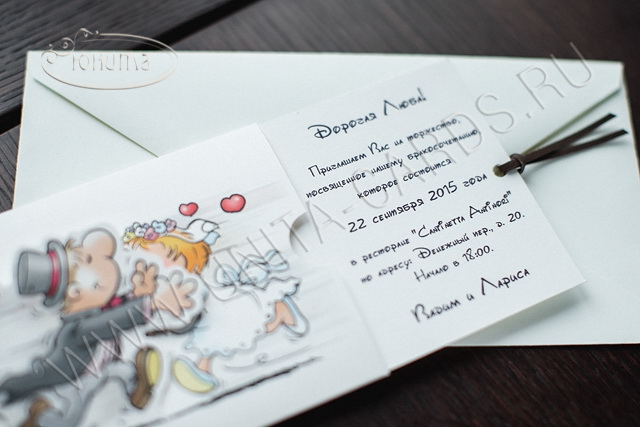 Юнита
Дорогая Люба!
Приглашаем Вас на торжество,
посвященное нашему бракосочетанию,
которое состоится
22 сентября 2015 года
в ресторане "Cantinetta Antinori"
по адресу: Денежный пер., д. 20.
Начало в 18:00.
Вадим и Лариса
WWW.UNITA-CARDS.RU